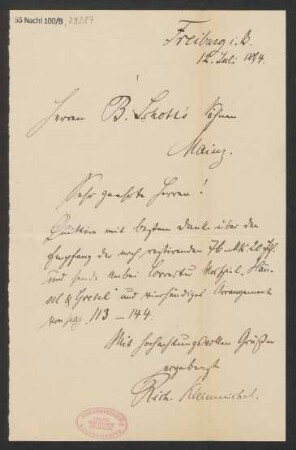 55 Nachl 100/B, 79287
Freiburg i. B.
12. Juli 1894.
Herren B. Schott's Söhnen
Mainz.
Sehr geehrte Herren!
Quittire mit bestem Dank über den
Empfang der noch restirenden 76 Mk 20 Pfg.
und sende anbei Vorspiel Hän-
sel & Gretel und vierhändiges Arrangement
von pag. 113 – 144.
Mit hochachtungsvollen Grüßen
ergebenst
Rich. Kleinmichel.